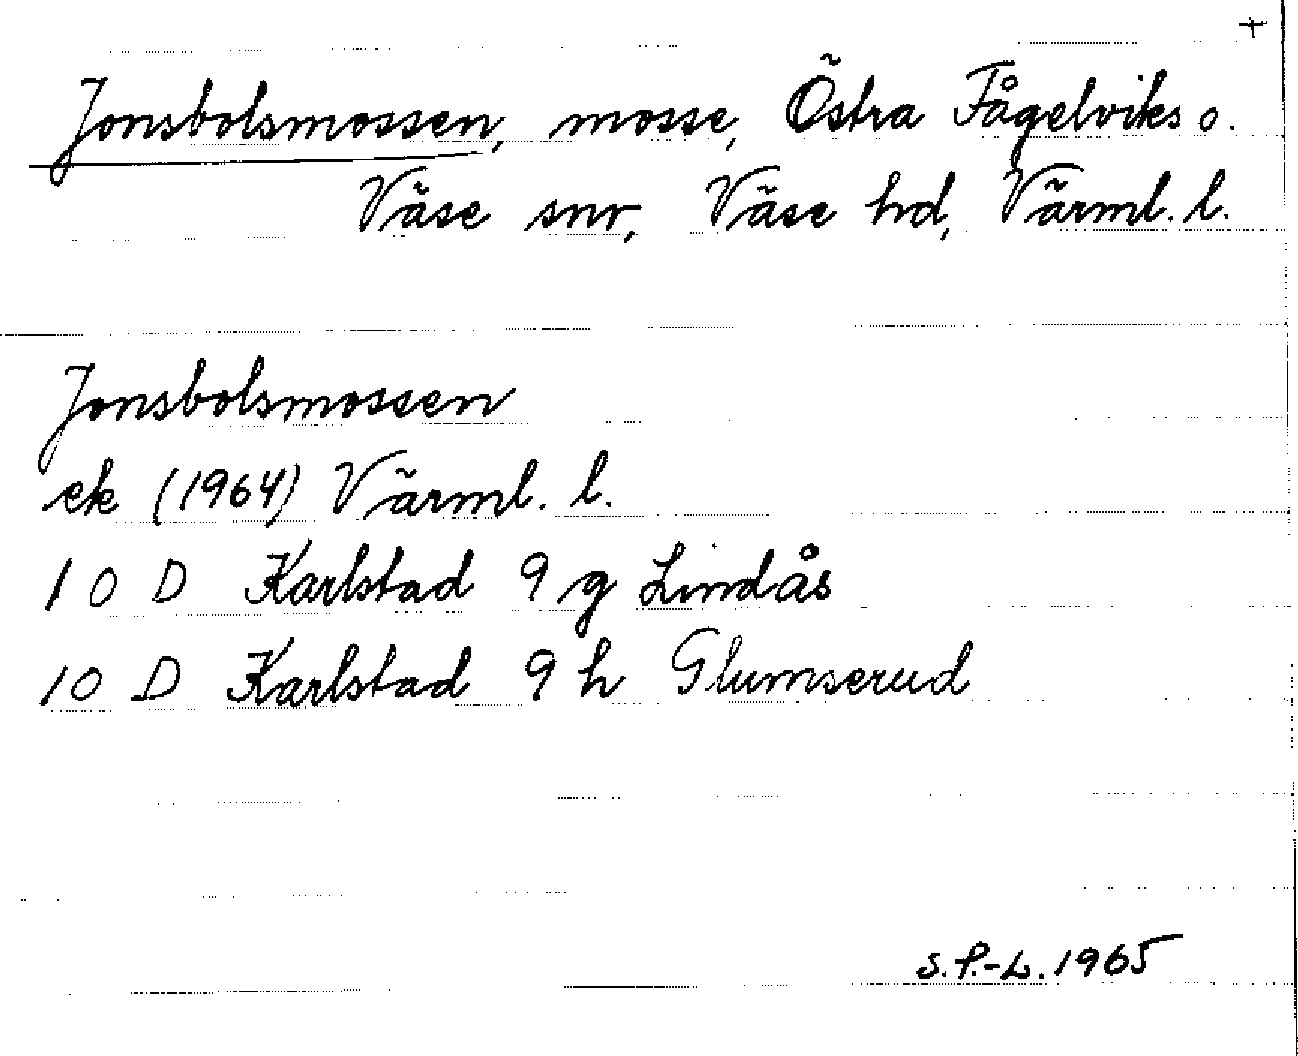 +
Jonsbolsmossen, mosse, Östra Fågelviks o.
Väse snr, Väse hd, Värml. l.
Jonsbolsmossen
ek (1964) Värml. l.
10 D Karlstad 9 g Lindås
10 D Karlstad 9 h Glumserud
S.P.-L. 1965